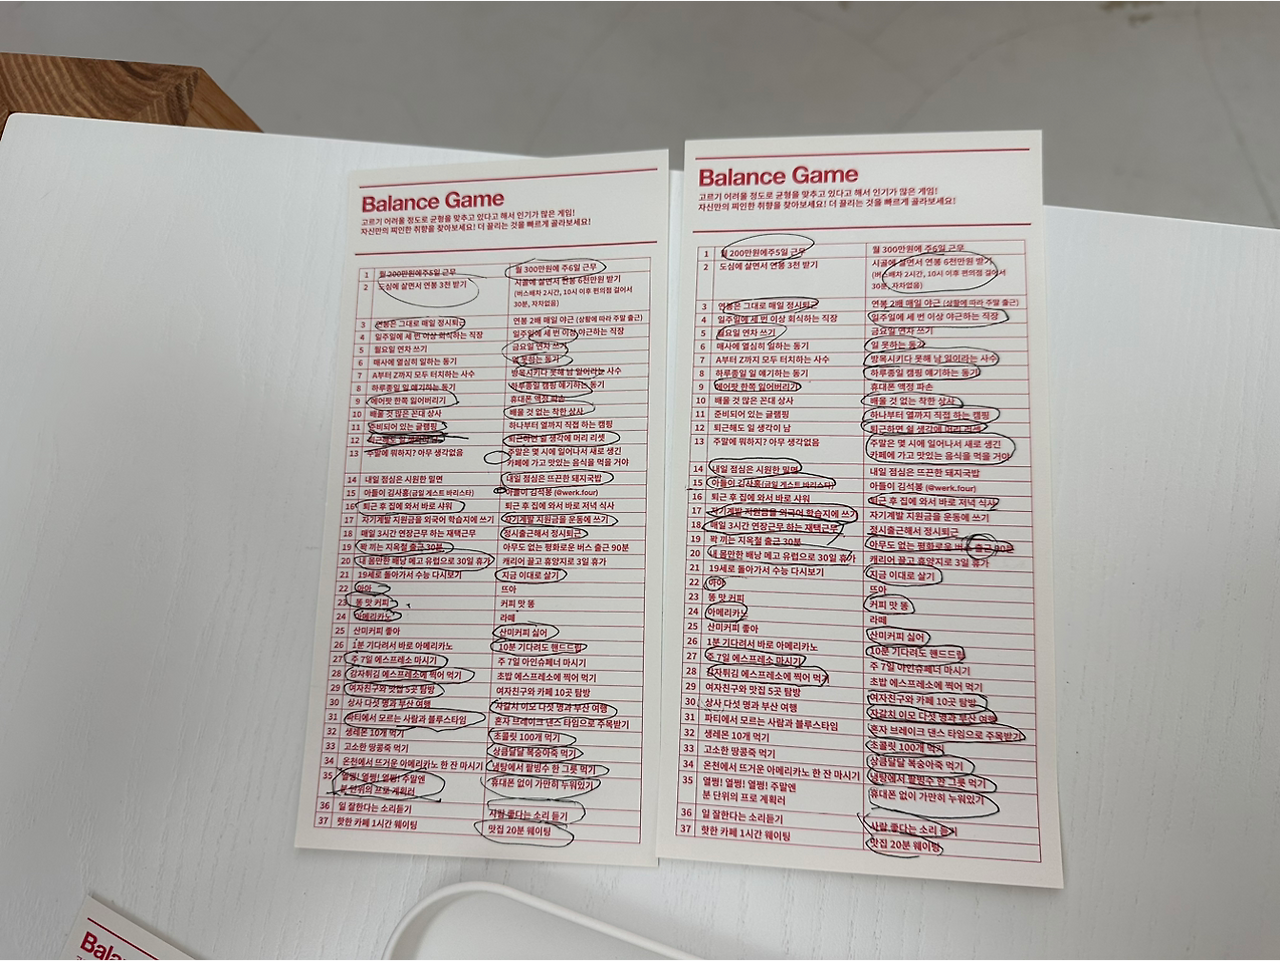 Balance Game
고르기 어려울 정도로 균형을 맞추고 있다고 해서 인기가 많은 게임!
자신만의 피인한 취향을 찾아보세요! 더 끌리는 것을 빠르게 골라보세요!
1 월 200만원에주5일 근무 월 300만원에 주6일 근무
2 도심에 살면서 연봉 3천 받기 시골에 살면서 연봉 6천만원 받기
(버스배차 2시간, 10시 이후 편의점 걸어서
30분, 자차없음)
3 연봉은 그대로 매일 정시퇴근 연봉 2배 매일 야근 (상황에 따라 주말 출근)
4 일주일에 세 번 이상 회식하는 직장 일주일에 세 번 이상 야근하는 직장
5 월요일 연차 쓰기 금요일 연차 쓰기
6 매사에 열심히 일하는 동기 일 못하는 동기
7 A부터 Z까지 모두 터치하는 사수 방목시키다 못해 남 일이라는 사수
8 하루종일 일 얘기하는 동기 하루종일 캠핑 얘기하는 동기
9 에어팟 한쪽 잃어버리기 휴대폰 액정 파손
10 배울 것 많은 꼰대 상사 배울 것 없는 착한 상사
11 준비되어 있는 글램핑 하나부터 열까지 직접 하는 캠핑
12 퇴근해도 일 생각이 남 퇴근하면 일 생각에 머리 리셋
13 주말에 뭐하지? 아무 생각없음 주말은 몇 시에 일어나서 새로 생긴
카페에 가고 맛있는 음식을 먹을 거야
14 내일 점심은 시원한 밀면 내일 점심은 뜨끈한 돼지국밥
15 아들이 김사홍(금일 게스트 바리스타) 아들이 김석봉 (@werk.four)
16 퇴근 후 집에 와서 바로 샤워 퇴근 후 집에 와서 바로 저녁 식사
17 자기계발 지원금을 외국어 학습지에 쓰기 자기계발 지원금을 운동에 쓰기
18 매일 3시간 연장근무 하는 재택근무 정시출근해서 정시퇴근
19 꽉 끼는 지옥철 출근 30분 아무도 없는 평화로운 버스 출근 90분
20 내 몸만한 배낭 메고 유럽으로 30일 휴가 캐리어 끌고 휴양지로 3일 휴가
21 19세로 돌아가서 수능 다시보기 지금 이대로 살기
22 아아 뜨아
23 똥 맛 커피 커피 맛 똥
24 아메리카노 라떼
25 산미커피 좋아 산미커피 싫어
26 1분 기다려서 바로 아메리카노 10분 기다려도 핸드드립
27 주 7일 에스프레소 마시기 주 7일 아인슈페너 마시기
28 감자튀김 에스프레소에 찍어 먹기 초밥 에스프레소에 찍어 먹기
29 여자친구와 맛집 5곳 탐방 여자친구와 카페 10곳 탐방
30 상사 다섯 명과 부산 여행 자갈치 이모 다섯 명과 부산 여행
31 파티에서 모르는 사람과 블루스타임 혼자 브레이크 댄스 타임으로 주목받기
32 생레몬 10개 먹기 초콜릿 100개 먹기
33 고소한 땅콩죽 먹기 상금달달 복숭아죽 먹기
34 온천에서 뜨거운 아메리카노 한 잔 마시기 냉탕에서 팥빙수 한 그릇 먹기
35 열쩡! 열쩡! 열쩡! 주말엔 휴대폰 없이 가만히 누워있기
분 단위의 프로 계획러
36 일 잘한다는 소리듣기 사람 좋다는 소리 듣기
37 핫한 카페 1시간 웨이팅 맛집 20분 웨이팅
Balance Game
고르기 어려울 정도로 균형을 맞추고 있다고 해서 인기가 많은 게임!
자신만의 피인한 취향을 찾아보세요! 더 끌리는 것을 빠르게 골라보세요!
1 월 200만원에주5일 근무 월 300만원에 주6일 근무
2 도심에 살면서 연봉 3천 받기 시골에 살면서 연봉 6천만원 받기
(버스배차 2시간, 10시 이후 편의점 걸어서
30분, 자차없음)
3 연봉은 그대로 매일 정시퇴근 연봉 2배 매일 야근 (상황에 따라 주말 출근)
4 일주일에 세 번 이상 회식하는 직장 일주일에 세 번 이상 야근하는 직장
5 월요일 연차 쓰기 금요일 연차 쓰기
6 매사에 열심히 일하는 동기 일 못하는 동기
7 A부터 Z까지 모두 터치하는 사수 방목시키다 못해 남 일이라는 사수
8 하루종일 일 얘기하는 동기 하루종일 캠핑 얘기하는 동기
9 에어팟 한쪽 잃어버리기 휴대폰 액정 파손
10 배울 것 많은 꼰대 상사 배울 것 없는 착한 상사
11 준비되어 있는 글램핑 하나부터 열까지 직접 하는 캠핑
12 퇴근해도 일 생각이 남 퇴근하면 일 생각에 머리 리셋
13 주말에 뭐하지? 아무 생각없음 주말은 몇 시에 일어나서 새로 생긴
카페에 가고 맛있는 음식을 먹을 거야
14 내일 점심은 시원한 밀면 내일 점심은 뜨끈한 돼지국밥
15 아들이 김사홍(금일 게스트 바리스타) 아들이 김석봉 (@werk.four)
16 퇴근 후 집에 와서 바로 샤워 퇴근 후 집에 와서 바로 저녁 식사
17 자기계발 지원금을 외국어 학습지에 쓰기 자기계발 지원금을 운동에 쓰기
18 매일 3시간 연장근무 하는 재택근무 정시출근해서 정시퇴근
19 꽉 끼는 지옥철 출근 30분 아무도 없는 평화로운 버스 출근 90분
20 내 몸만한 배낭 메고 유럽으로 30일 휴가 캐리어 끌고 휴양지로 3일 휴가
21 19세로 돌아가서 수능 다시보기 지금 이대로 살기
22 아아 뜨아
23 똥 맛 커피 커피 맛 똥
24 아메리카노 라떼
25 산미커피 좋아 산미커피 싫어
26 1분 기다려서 바로 아메리카노 10분 기다려도 핸드드립
27 주 7일 에스프레소 마시기 주 7일 아인슈페너 마시기
28 감자튀김 에스프레소에 찍어 먹기 초밥 에스프레소에 찍어 먹기
29 여자친구와 맛집 5곳 탐방 여자친구와 카페 10곳 탐방
30 상사 다섯 명과 부산 여행 자갈치 이모 다섯 명과 부산 여행
31 파티에서 모르는 사람과 블루스타임 혼자 브레이크 댄스 타임으로 주목받기
32 생레몬 10개 먹기 초콜릿 100개 먹기
33 고소한 땅콩죽 먹기 상금달달 복숭아죽 먹기
34 온천에서 뜨거운 아메리카노 한 잔 마시기 냉탕에서 팥빙수 한 그릇 먹기
35 열쩡! 열쩡! 열쩡! 주말엔 휴대폰 없이 가만히 누워있기
분 단위의 프로 계획러
36 일 잘한다는 소리듣기 사람 좋다는 소리 듣기
37 핫한 카페 1시간 웨이팅 맛집 20분 웨이팅